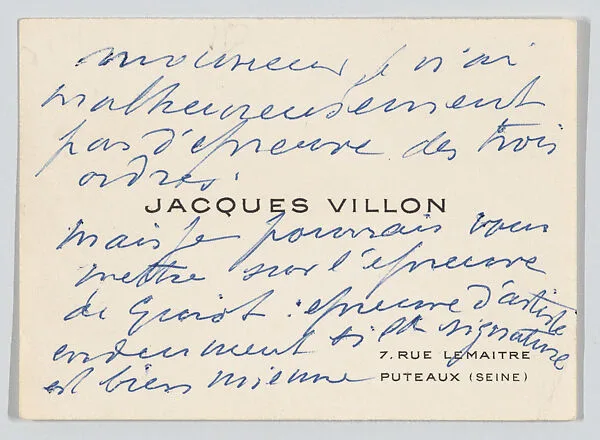 monsieur, je n'ai
malheureusement
pas d'épreuve des trois
ordres.
JACQUES VILLON
mais je pourrais vous
mettre sur l'épreuve
de Guiot : épreuve d'artiste
evidemment si la signature
est bien mienne
7. RUE LEMAITRE
PUTEAUX (SEINE)